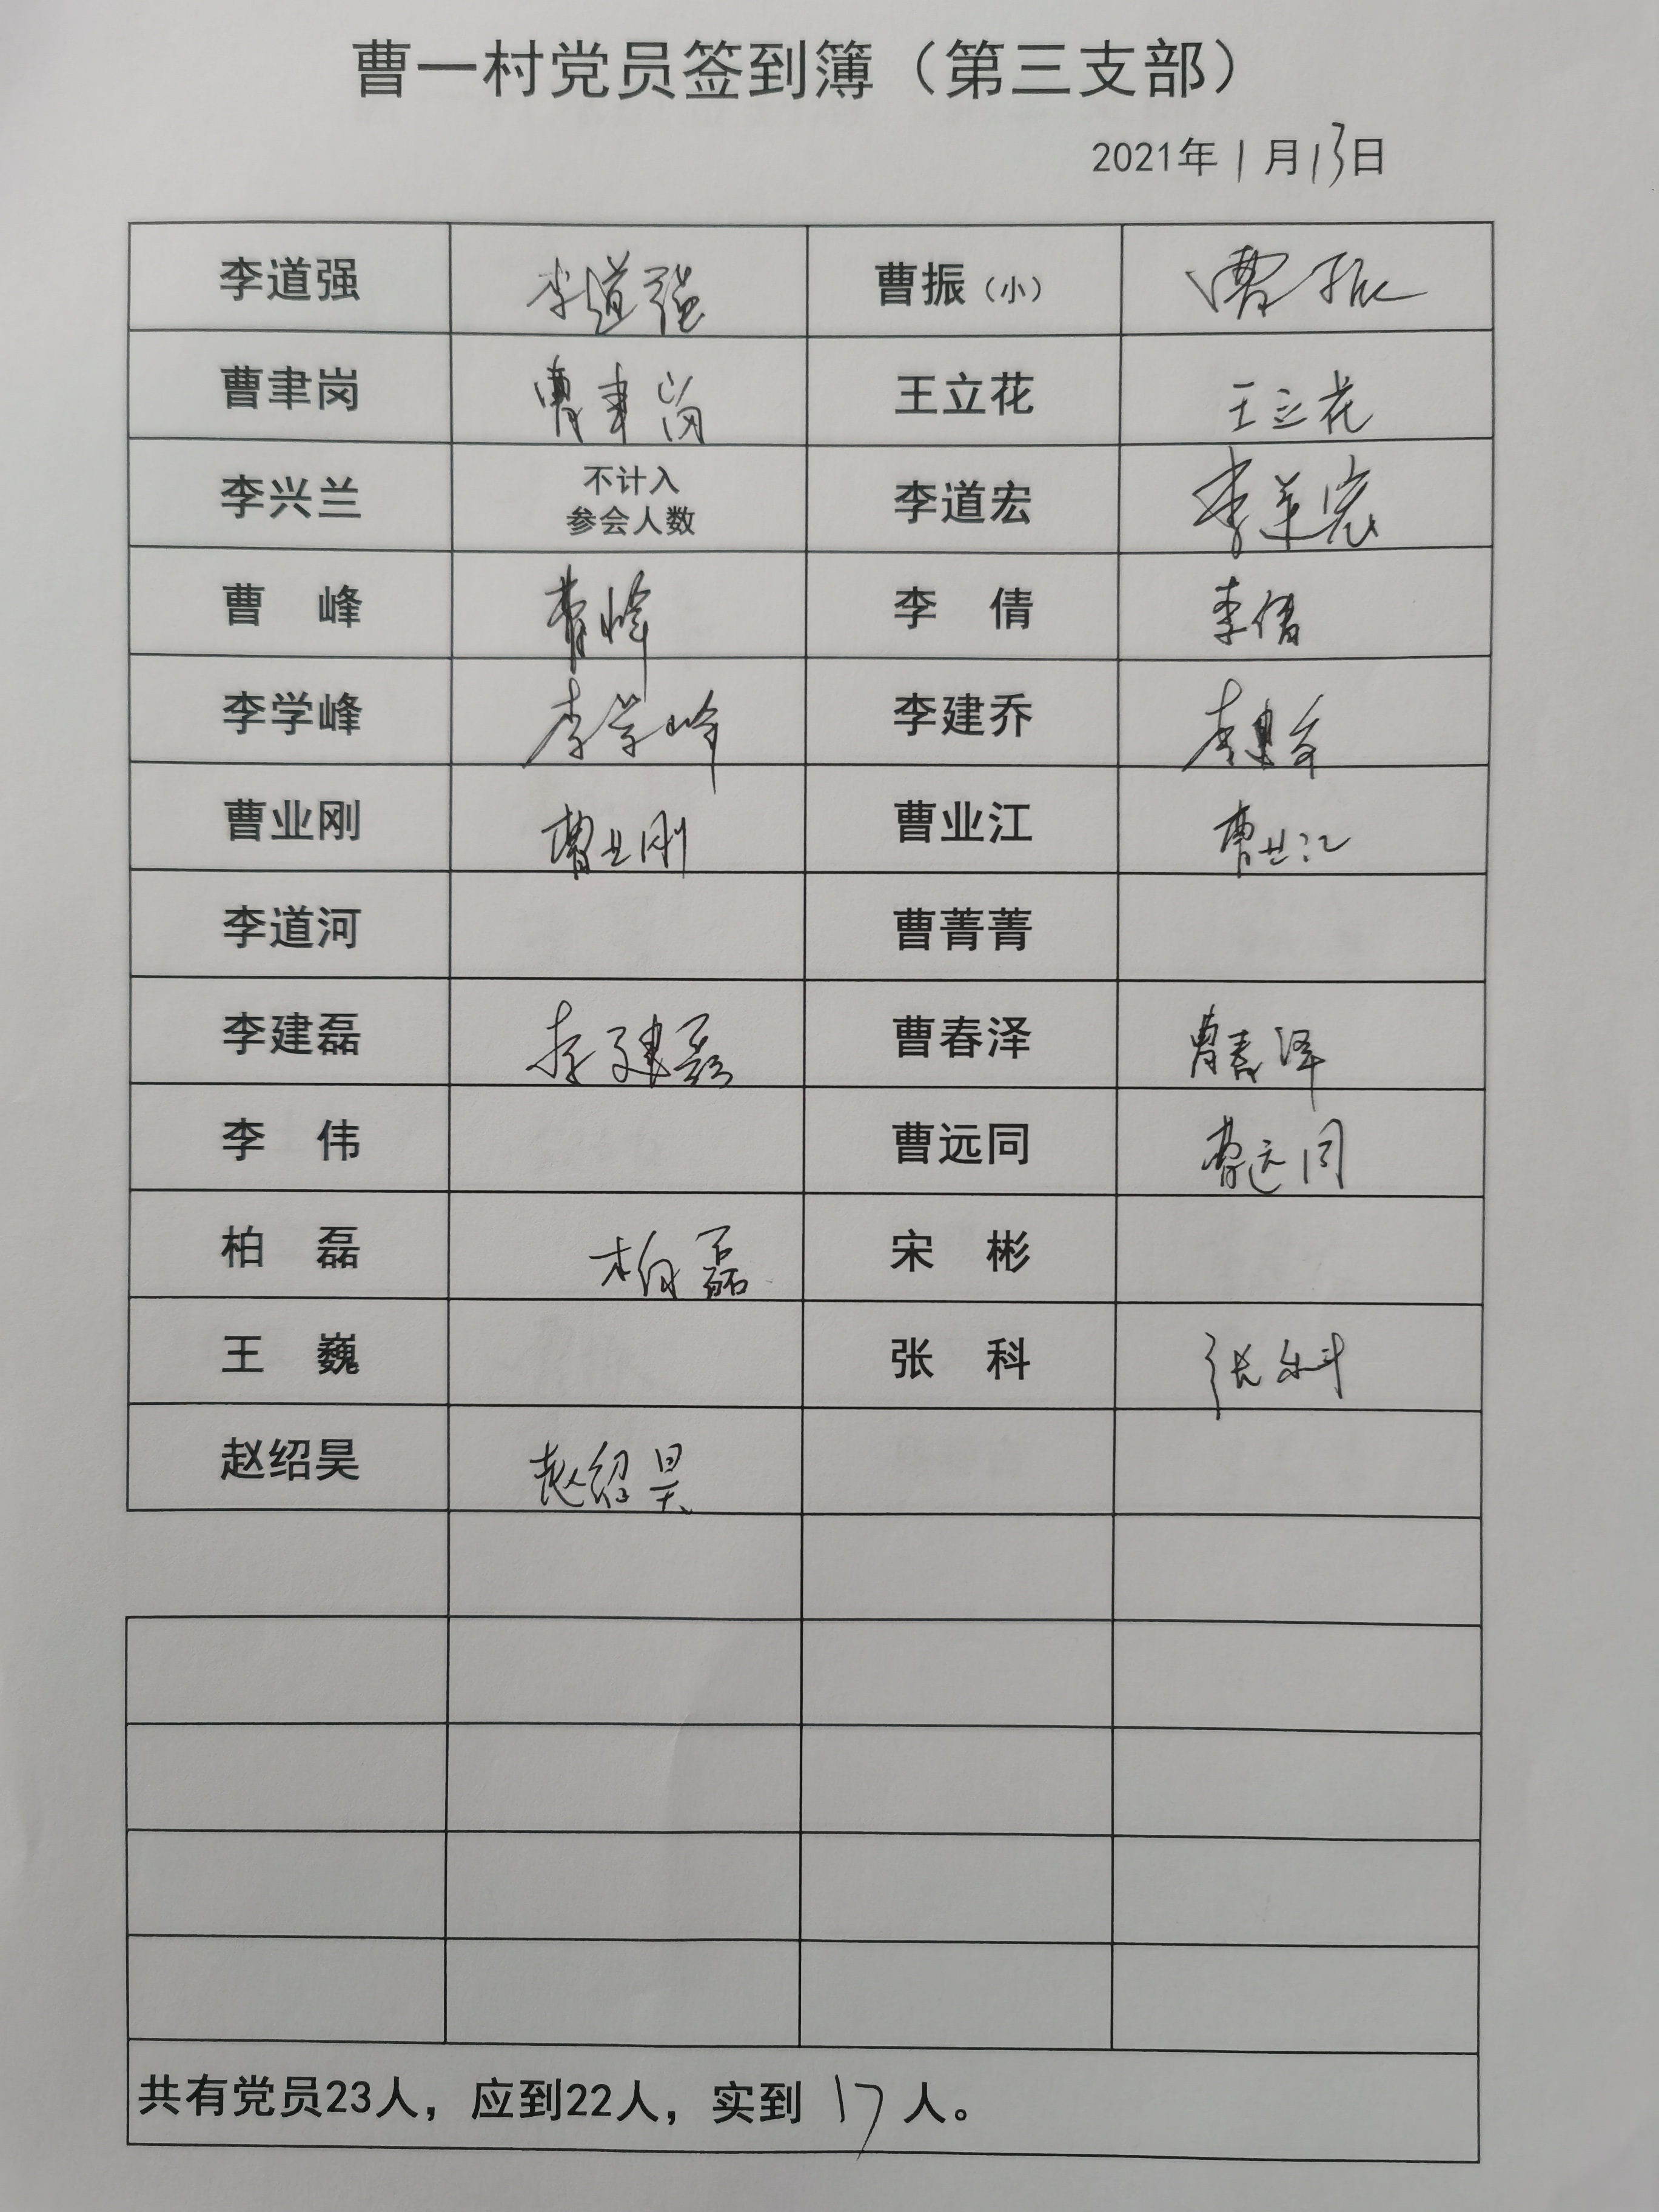 曹一村党员签到簿（第三支部）
2021年1月13日
李道强 李道强 曹振（小） 曹振
曹聿岗 曹聿岗 王立花 王立花
李兴兰 不计入 李道宏 李道宏
参会人数
曹 峰 曹峰 李 倩 李倩
李学峰 李学峰 李建乔 李建乔
曹业刚 曹业刚 曹业江 曹业江
李道河 曹菁菁
李建磊 李建磊 曹春泽 曹春泽
李 伟 曹远同 曹远同
柏 磊 柏磊 宋 彬
王 巍 张 科 张科
赵绍昊 赵绍昊
共有党员23人，应到22人，实到 17 人。